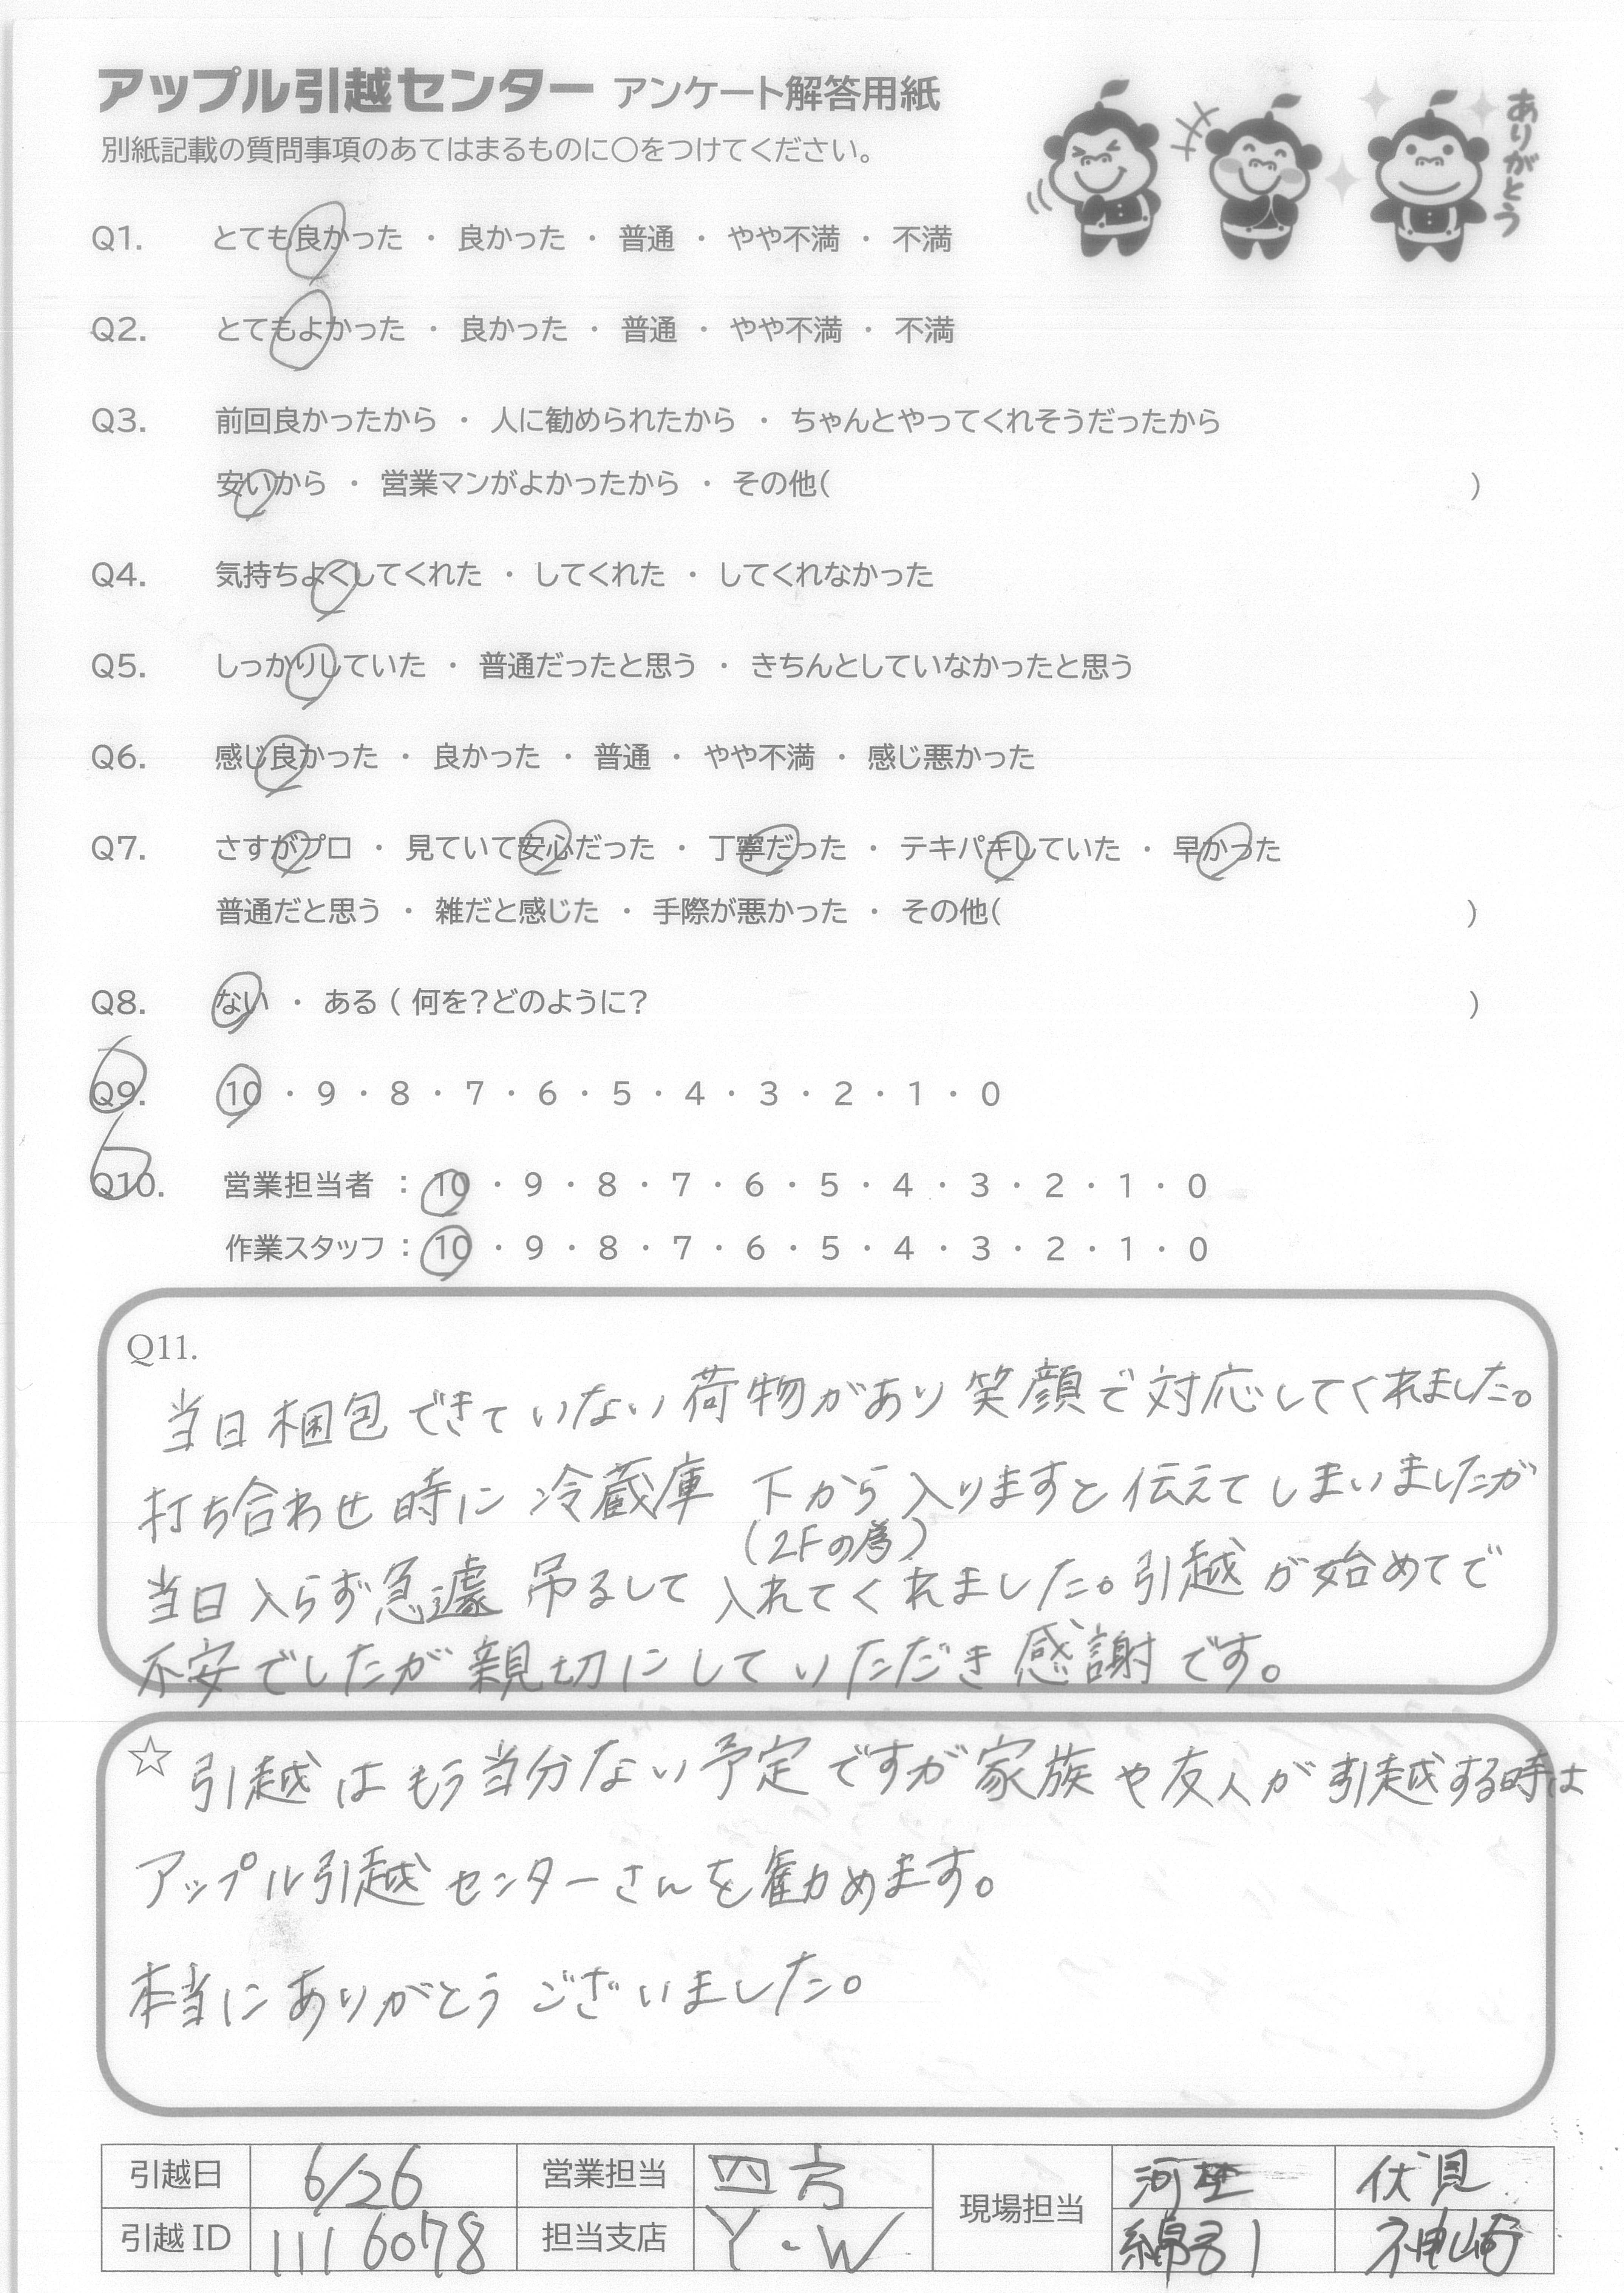 アップル引越センター アンケート解答用紙
別紙記載の質問事項のあてはまるものに○をつけてください。
ありがとう
Q1. とても良かった ・ 良かった ・ 普通 ・ やや不満 ・ 不満
Q2. とてもよかった ・ 良かった ・ 普通 ・ やや不満 ・ 不満
Q3. 前回良かったから ・ 人に勧められたから ・ ちゃんとやってくれそうだったから
安いから ・ 営業マンがよかったから ・ その他( )
Q4. 気持ちよくしてくれた ・ してくれた ・ してくれなかった
Q5. しっかりしていた ・ 普通だったと思う ・ きちんとしていなかったと思う
Q6. 感じ良かった ・ 良かった ・ 普通 ・ やや不満 ・ 感じ悪かった
Q7. さすがプロ ・ 見ていて安心だった ・ 丁寧だった ・ テキパキしていた ・ 早かった
普通だと思う ・ 雑だと感じた ・ 手際が悪かった ・ その他( )
Q8. ない ・ ある ( 何を?どのように? )
Q9. 10 ・ 9 ・ 8 ・ 7 ・ 6 ・ 5 ・ 4 ・ 3 ・ 2 ・ 1 ・ 0
Q10. 営業担当者 : 10 ・ 9 ・ 8 ・ 7 ・ 6 ・ 5 ・ 4 ・ 3 ・ 2 ・ 1 ・ 0
作業スタッフ : 10 ・ 9 ・ 8 ・ 7 ・ 6 ・ 5 ・ 4 ・ 3 ・ 2 ・ 1 ・ 0
Q11.
当日梱包できていない荷物があり笑顔で対応してくれました。
打ち合わせ時に冷蔵庫 下から入りますと伝えてしまいましたが
(2Fの為)
当日入らず急遽 吊るして入れてくれました。引越が始めてで
不安でしたが親切にしていただき感謝です。
☆ 引越はもう当分ない予定ですが家族や友人が引越する時は
アップル引越センターさんを勧めます。
本当にありがとうございました。
引越日 6/26 営業担当 四方 現場担当 河埜 伏見
引越ID 1116078 担当支店 Y・W 綿引 神崎